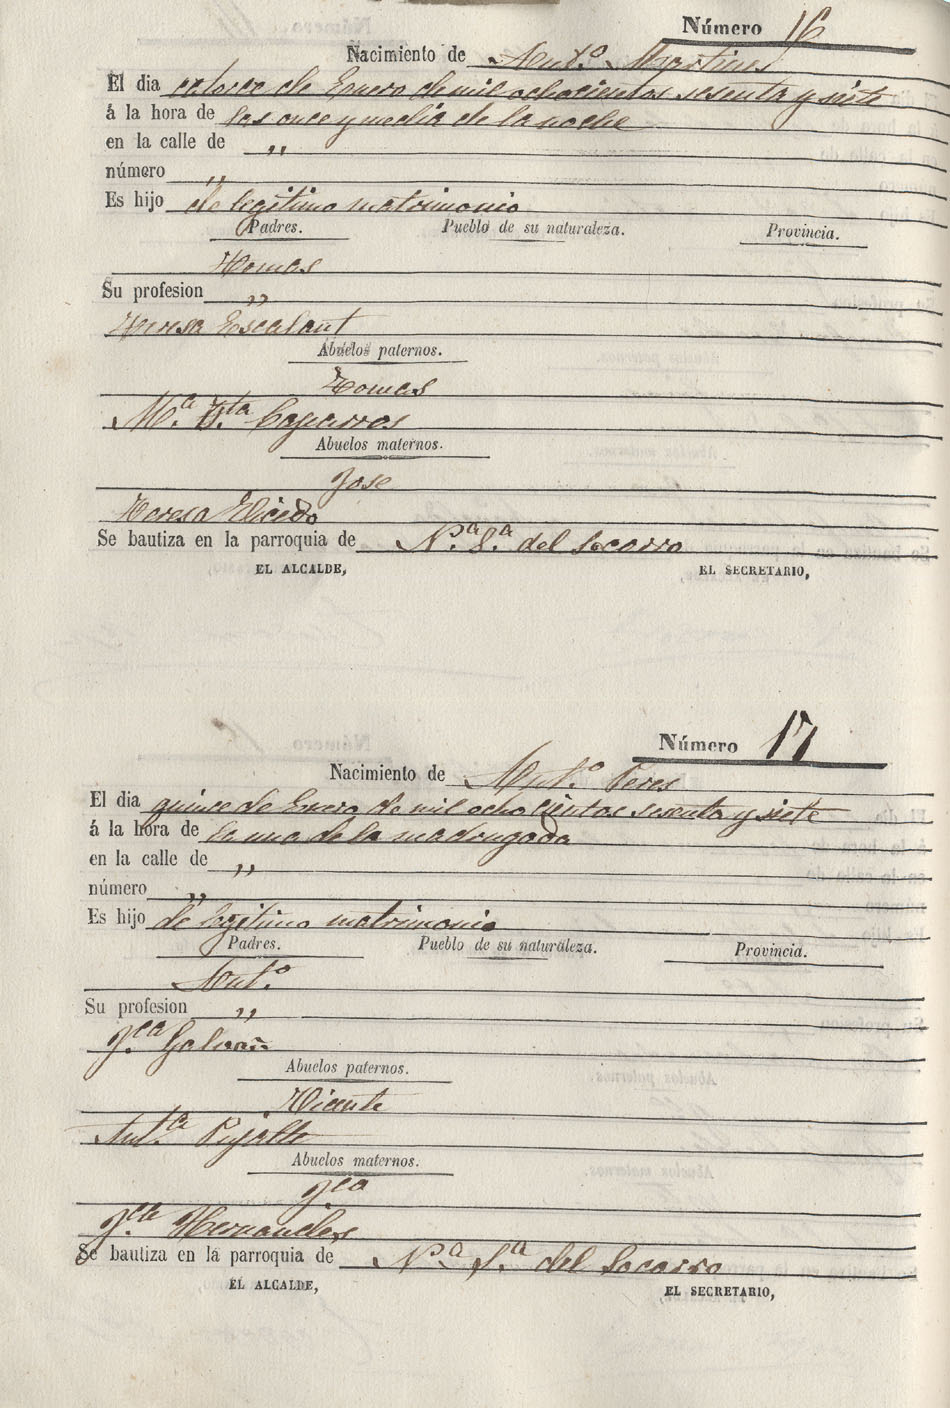 Número 16
Nacimiento de Ant.º Martines
El dia catorce de Enero de mil ochocientos sesenta y siete
á la hora de las once y media de la noche
en la calle de „
número „
Es hijo de legitimo matrimonio
Padres. Pueblo de su naturaleza. Provincia.
Tomas
Su profesion „
Teresa Escalant
Abuelos paternos.
Tomas
M.ª V.ta Caparros
Abuelos maternos.
Jose
Teresa
Se bautiza en la parroquia de N.ª S.ª del Socorro
EL ALCALDE, EL SECRETARIO,
Número 17
Nacimiento de Ant.º Peres
El dia quinse de Enero de mil ochocientos sesenta y siete
á la hora de la una de la madrugada
en la calle de „
número „
Es hijo de legitimo matrimonio
Padres. Pueblo de su naturaleza. Provincia.
Ant.º
Su profesion „
J.ca Galvañ
Abuelos paternos.
Vicente
Ant.ª Pujalte
Abuelos maternos.
J.co
J.ca Hernandes
Se bautiza en la parroquia de N.ª S.ª del Socorro
EL ALCALDE, EL SECRETARIO,